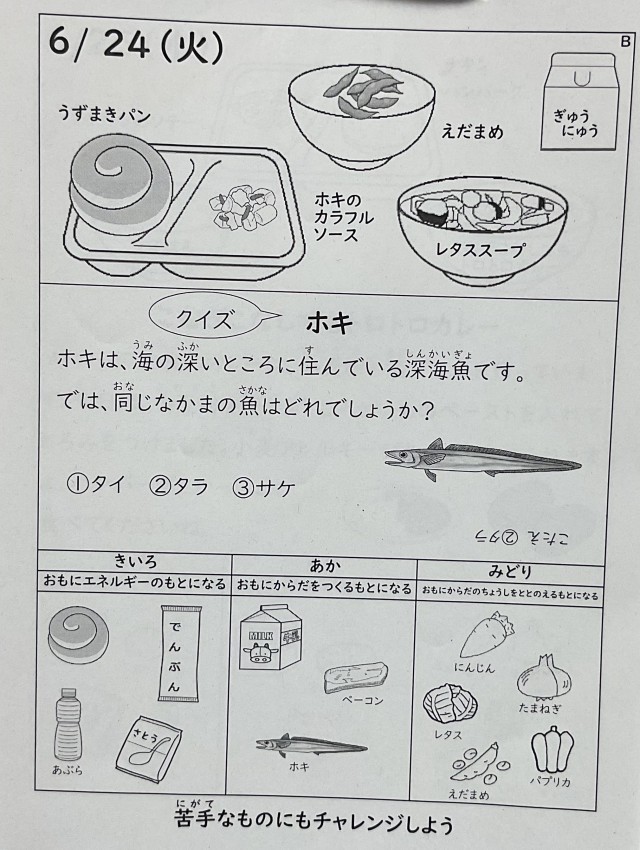 B
6/24(火)
うずまきパン
えだまめ
ぎゅう
にゅう
ホキの
カラフル
ソース
レタススープ
クイズ
ホキ
ホキは、海の深いところに住んでいる深海魚です。
うみ ふか す しんかいぎょ
では、同じなかまの魚はどれでしょうか?
おな さかな
①タイ ②タラ ③サケ
こたえ ②タラ
きいろ
おもにエネルギーのもとになる
あか
おもにからだをつくるもとになる
みどり
おもにからだのちょうしをととのえるもとになる
でんぷん
あぶら
さとう
MILK
ベーコン
ホキ
にんじん
たまねぎ
レタス
えだまめ
パプリカ
にがて
苦手なものにもチャレンジしよう